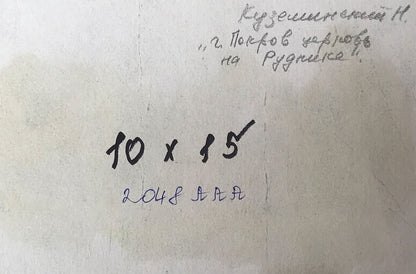 Куземинский Н
„г. Покров церковь
на Руднике".
10 x 15
2048 AAA